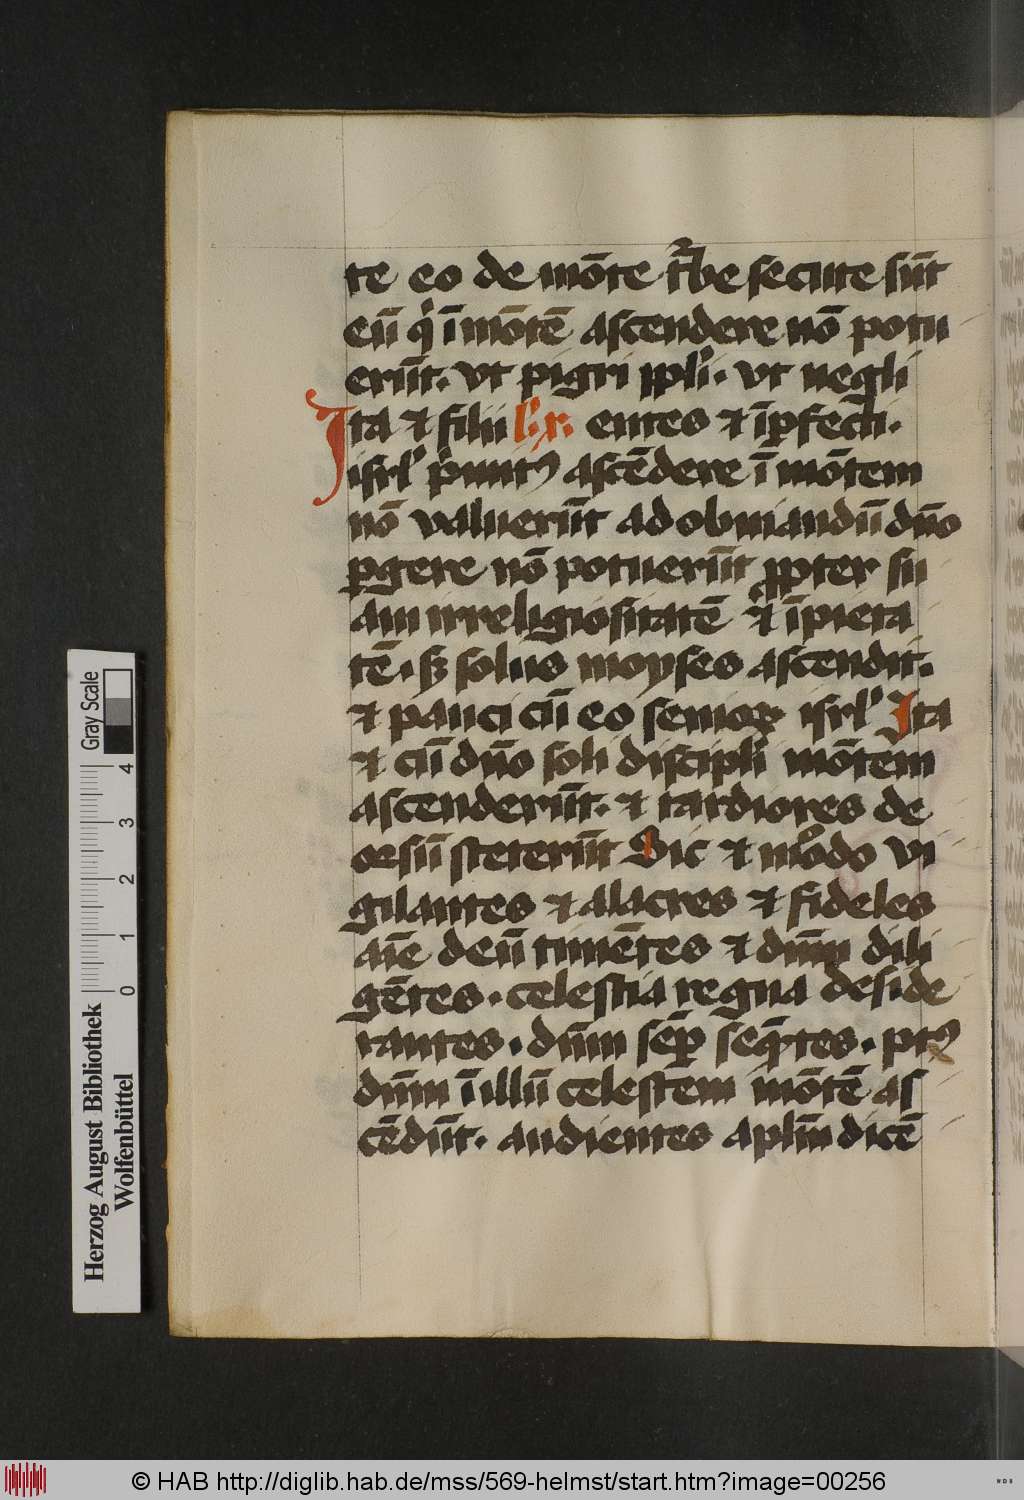 te eo de mōte t̾be secute sūt
eū qͥ ī mōtē ascendere nō potu
erūt. vt pigri ppl̓i. vt negli
Ita et filii l̓.x. entes et īp̱fecti.
isrl̓ p̓mitꝰ ascēdere ī mōtem
nō valuerūt ad obuiandū dn̄o
ꝑgere nō potuerūt ꝓpter su
am irreligiositatē et īpieta
tē. sꝫ solus moyses ascendit.
et pauci cū eo senioꝝ isrl̓ Ita
et cū dn̄o soli discipl̓i mōtem
ascenderūt. et tardiores de
orsū steterūt Sic et mͦdo vi
gilantes et alacres et fideles
aīe deū timētes et dn̄m dili
gētes. celestia regna deside
rantes. dn̄m sēꝑ seq̄ntes. ptꝰ
dn̄m ī illū celestem mōtē as
cēdūt. audientes apl̄m dicē
Herzog August Bibliothek
Wolfenbüttel
Gray Scale
0 1 2 3 4
© HAB http://diglib.hab.de/mss/569-helmst/start.htm?image=00256